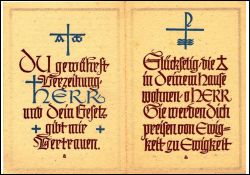 DU gewährst
Verzeihung,
HERR
und dein Gesetz
gibt mir
Vertrauen.
Glückselig, die
in deinem Hause
wohnen, o HERR
Sie werden dich
preisen von Ewig-
keit zu Ewigkeit